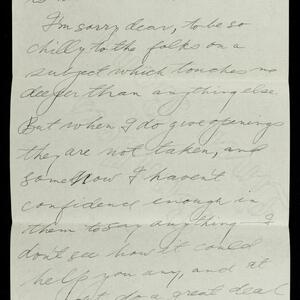 I'm sorry dear, to be so
chilly to the folks on a
subject which touches me
deeper than anything else.
But when I do give openings
they are not taken, and
somehow I haven't
confidence enough in
them to say anything. I
don't see how it could
help you any, and at
not do a great deal